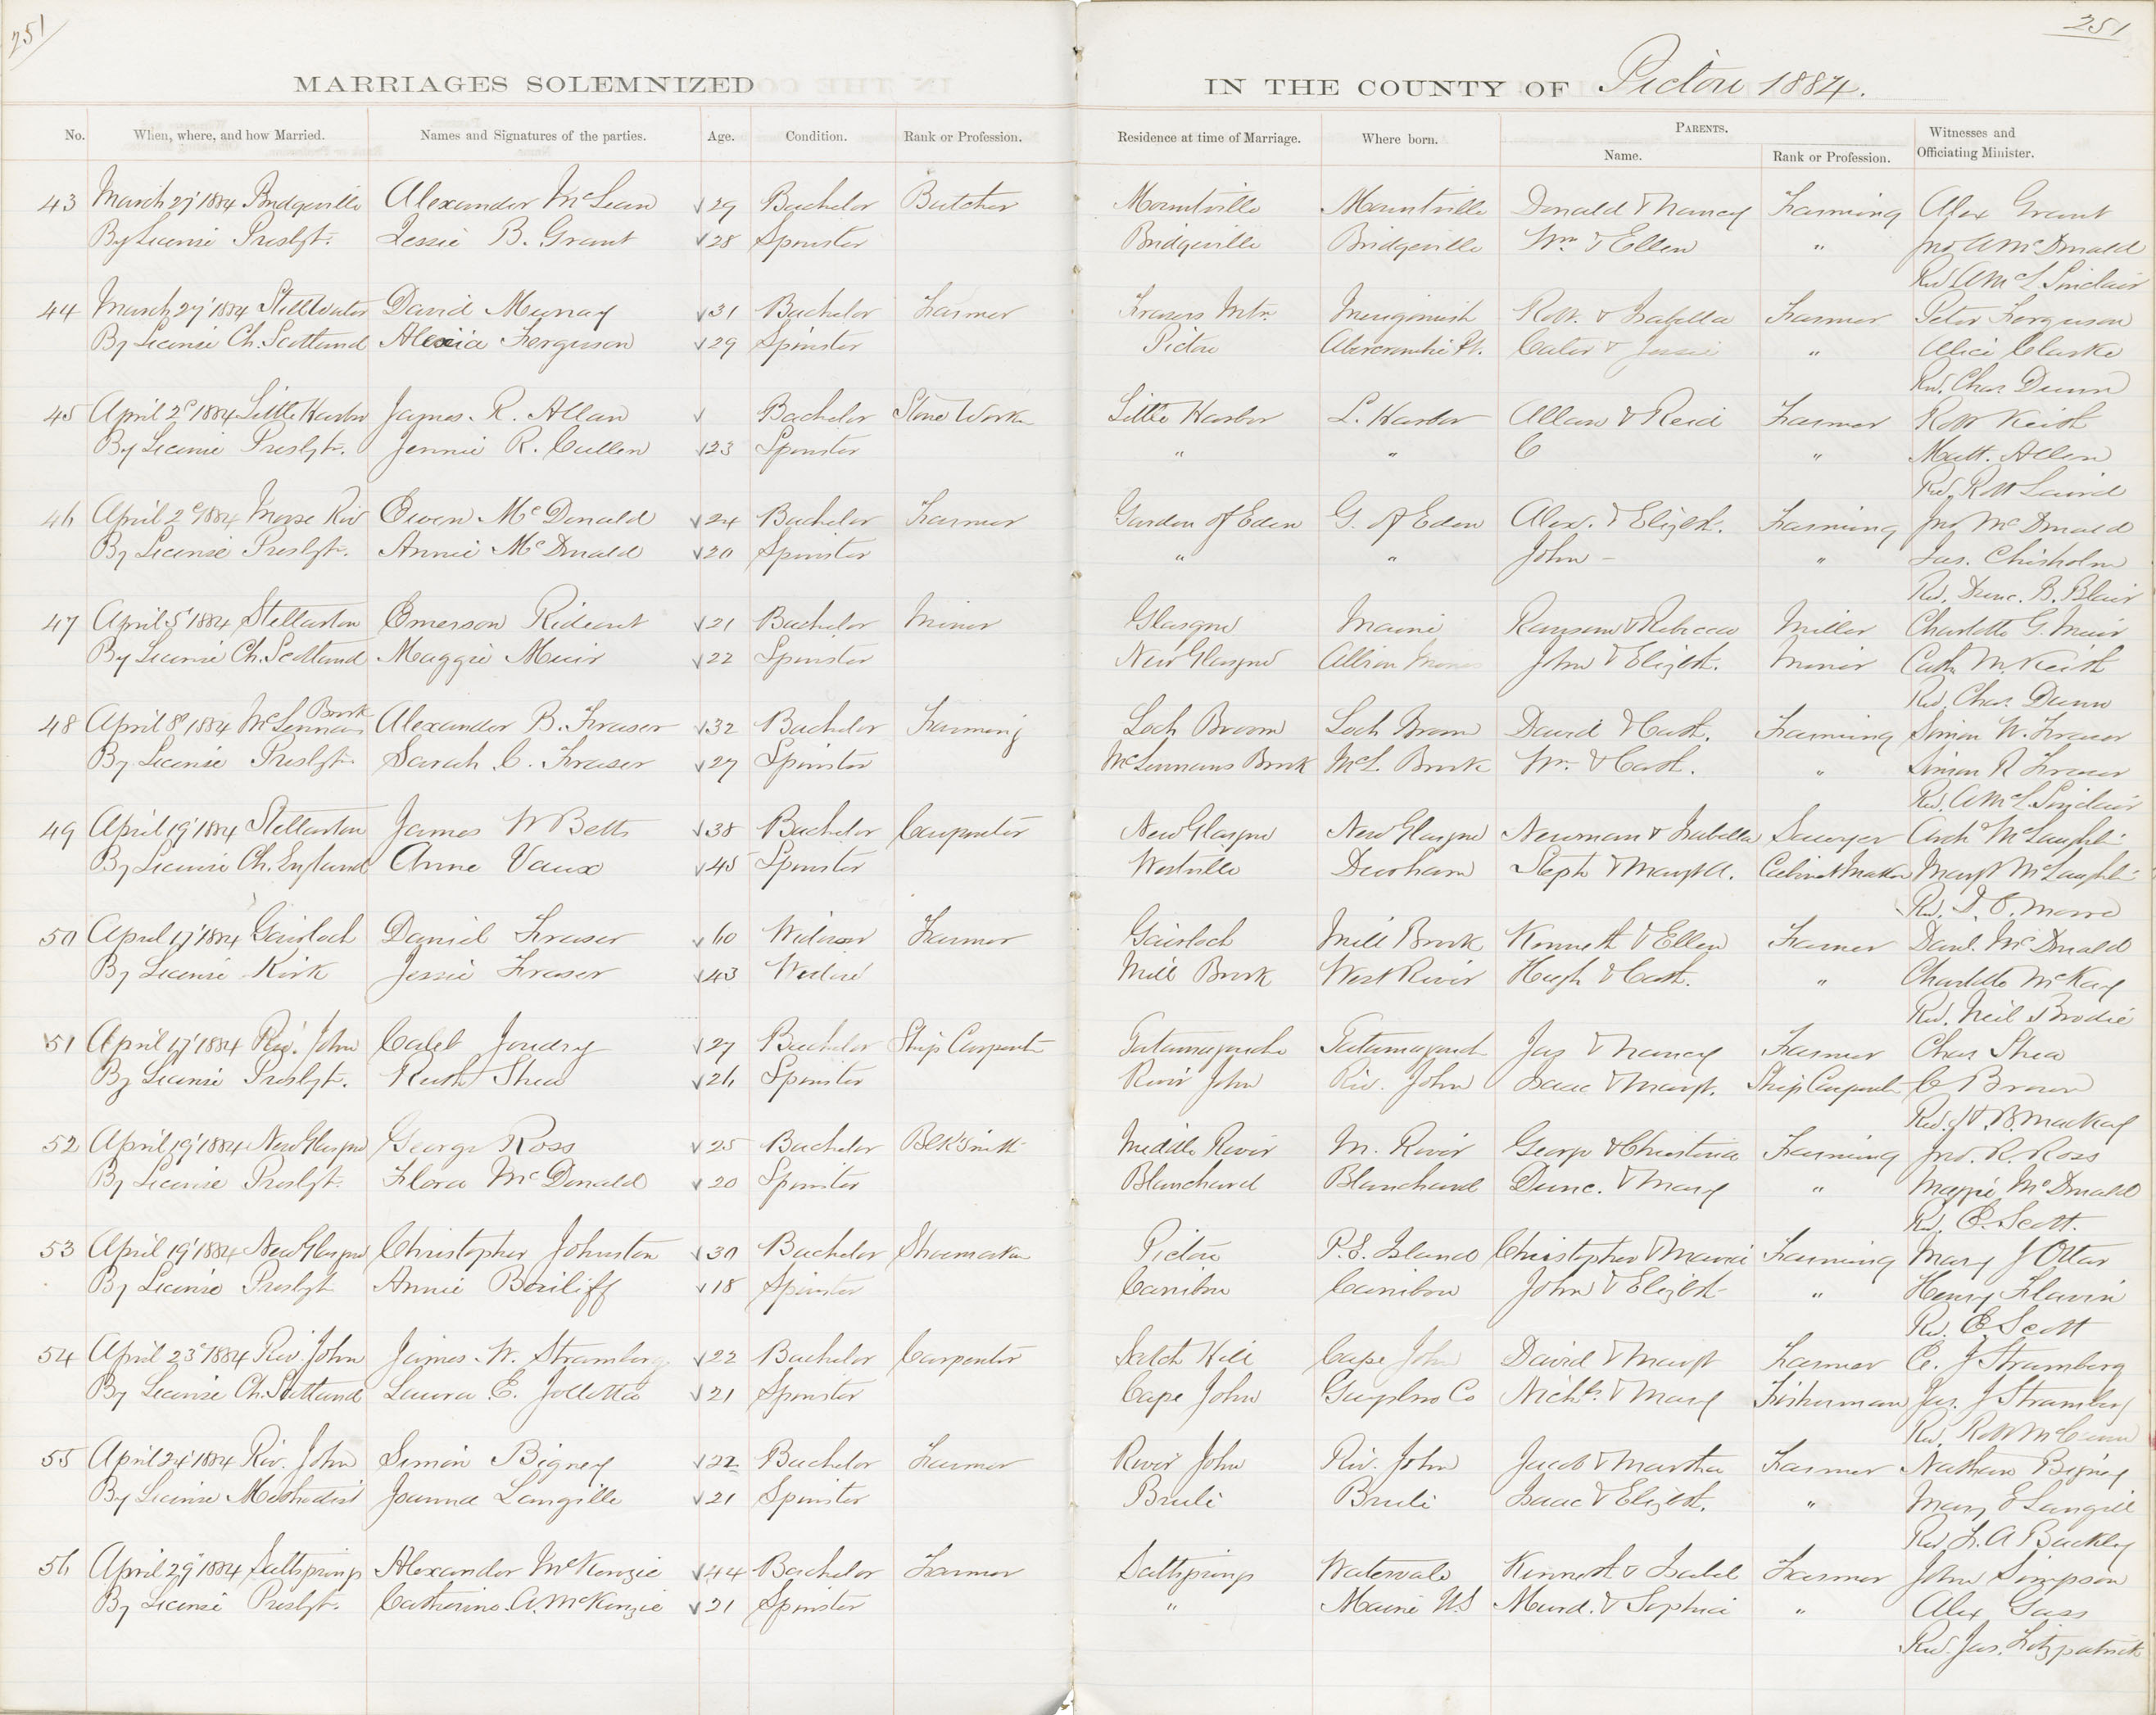 251
251
MARRIAGES SOLEMNIZED IN THE COUNTY OF Pictou 1884.
No. When, where, and how Married. Names and Signatures of the parties. Age. Condition. Rank or Profession. Residence at time of Marriage. Where born. PARENTS. Name. Rank or Profession. Witnesses and Officiating Minister.
43 March 27 1884 Bridgeville Alexander McLean 29 Bachelor Butcher Mountville Mountville Donald & Nancy Farming Alex Grant
By License Presbyt. Jessie B. Grant 28 Spinster Bridgeville Bridgeville Wm & Ellen " Jno A McDonald
Rev A McL Sinclair
44 March 27 1884 Stellarton David Murray 31 Bachelor Farmer Frasers Mtn. Merigomish Robt. & Isabella Farmer Peter Ferguson
By License Ch. Scotland Alexia Ferguson 29 Spinster Pictou Abercrombie Pt. & Jessie " Alice Clarke
Rev. Chas Dunn
45 April 2d 1884 Little Harbor James R. Allan Bachelor Stone Worker Little Harbor L. Harbor Allan & Reid Farmer Robt Keith
By License Presbyt. Jennie R. Cullen 23 Spinster " " C " Matt. Allen
Rev. Robt Laird
46 April 2d 1884 Moose Riv Ewen McDonald 24 Bachelor Farmer Garden of Eden G. of Eden Alex. & Elizbth. Farming Jno McDonald
By License Presbyt. Annie McDonald 20 Spinster " " John - " Jas. Chisholm
Rev. Dunc. B. Blair
47 April 5 1884 Stellarton Emerson Rideout 21 Bachelor Miner Glasgow Maine Ransom & Rebecca Miller Charlotte G. Muir
By License Ch. Scotland Maggie Muir 22 Spinster New Glasgow Albion Mines John & Elizbth. Miner Cath M. Keith
Rev. Chas. Dunn
48 April 8 1884 McLennans Brook Alexander B. Fraser 32 Bachelor Farming Loch Broom Loch Broom David & Cath. Farming Simon W. Fraser
By License Presbyt. Sarah C. Fraser 27 Spinster McLennans Brook McL. Brook Wm. & Cath. " Simon R Fraser
Rev. A McL Sinclair
49 April 19 1884 Stellarton James W Betts 38 Bachelor Carpenter New Glasgow New Glasgow Newman & Isabella Sawyer Arch McLaughlin
By License Ch. England Anne Vaux 45 Spinster Westville Durham Steph & Margt A. Cabinet Maker Margt McLaughlin
Rev. D. C. Moore
50 April 17 1884 Gairloch Daniel Fraser 60 Widower Farmer Gairloch Mill Brook Kenneth & Ellen Farmer Danl. McDonald
By License Kirk Jessie Fraser 43 Widow Mill Brook West River Hugh & Cath. " Charlotte McKay
Rev. Neil Brodie
51 April 17 1884 Riv. John Caleb Joudry 27 Bachelor Ship Carpenter Tatamagouche Tatamagouch Jas & Nancy Farmer Chas Shea
By License Presbyt. Ruth Shea 26 Spinster River John Riv. John Isaac & Margt. Ship Carpenter C Brown
Rev. H. B. MacKay
52 April 19 1884 New Glasgow George Ross 25 Bachelor Blk Smith Middle River M. River George & Christina Farming Jno. R. Ross
By License Presbyt. Flora McDonald 20 Spinster Blanchard Blanchard Dunc. & Mary " Maggie McDonald
Rev. E. Scott.
53 April 19 1884 New Glasgow Christopher Johnston 30 Bachelor Shoemaker Pictou P. E. Island Christopher & Maria Farming Mary J Otter
By License Presbyt Annie Bailiff 18 Spinster Caribou Caribou John & Elizbth " Henry Flavin
Rev. E Scott
54 April 23d 1884 Riv. John James W. Stramberg 22 Bachelor Carpenter Scotch Hill Cape John David & Margt Farmer C. J Stramberg
By License Ch. Scotland Laura E. Jollotta 21 Spinster Cape John Guysbro Co Nichs. & Mary Fisherman Jas. J Stramberg
Rev. Robt McCunn
55 April 24 1884 Riv. John Simon Bigney 22 Bachelor Farmer River John Riv. John Jacob & Martha Farmer Nathan Bigney
By License Methodist Joanna Langille 21 Spinster Brule Brule Isaac & Elizbth. " Mary E Langill
Rev. F. A Buckley
56 April 29 1884 Saltsprings Alexander McKenzie 44 Bachelor Farmer Saltsprings Watervale Kenneth & Isabel Farmer John Simpson
By License Presbyt. Catherine A. McKenzie 21 Spinster " Maine US Murd. & Sophia " Alex Gass
Rev. Jas. Fitzpatrick